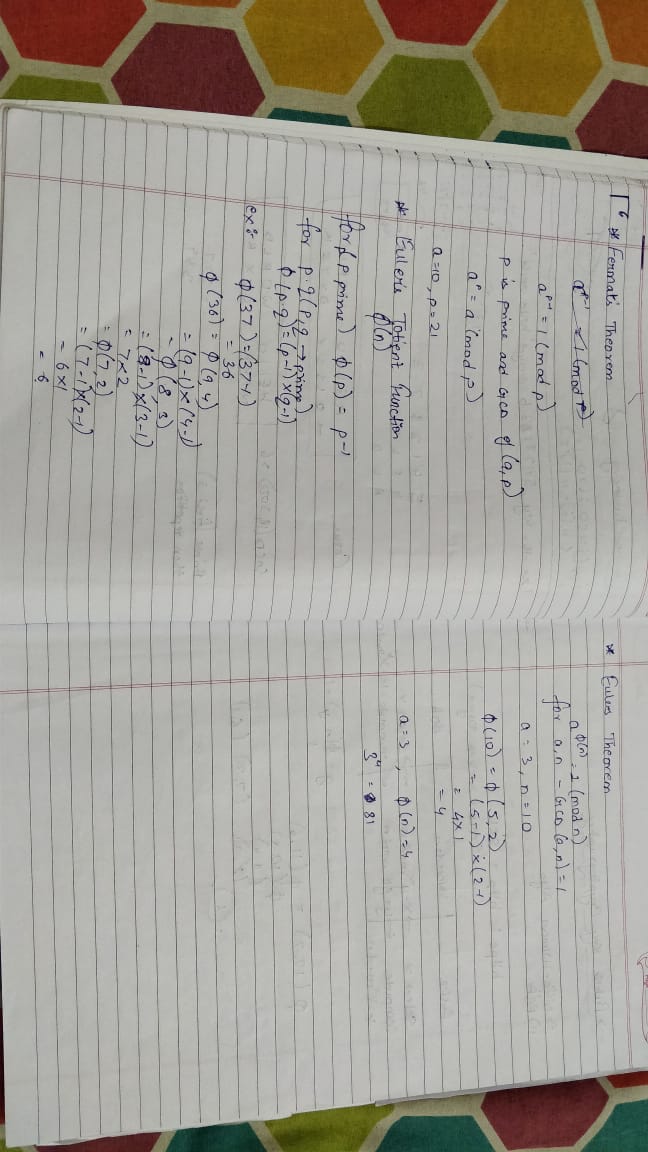 * Fermat's Theorem
a^p-1 ≡ 1 (mod p)
a^p-1 = 1 (mod p)
p is prime and GCD of (a, p)
a^p = a (mod p)
a=10, p=21
* Euler's Totient Function
φ(n)
for p (p prime) φ(p) = p-1
for p.q (p, q → prime)
φ(p.q) = (p-1) x (q-1)
ex: φ(37) = (37-1)
= 36
φ(36) = φ(9,4)
= (9-1) x (4-1)
= φ(8,3)
= (8-1) x (3-1)
= 7x2
= φ(7,2)
= (7-1) x (2-1)
= 6x1
= 6
* Eulers Theorem
a^φ(n) = 1 (mod n)
for a, n - GCD (a, n) = 1
a = 3, n = 10
φ(10) = φ(5, 2)
= (5-1) x (2-1)
= 4x1
= 4
a=3, φ(n)=4
3^4 = 81